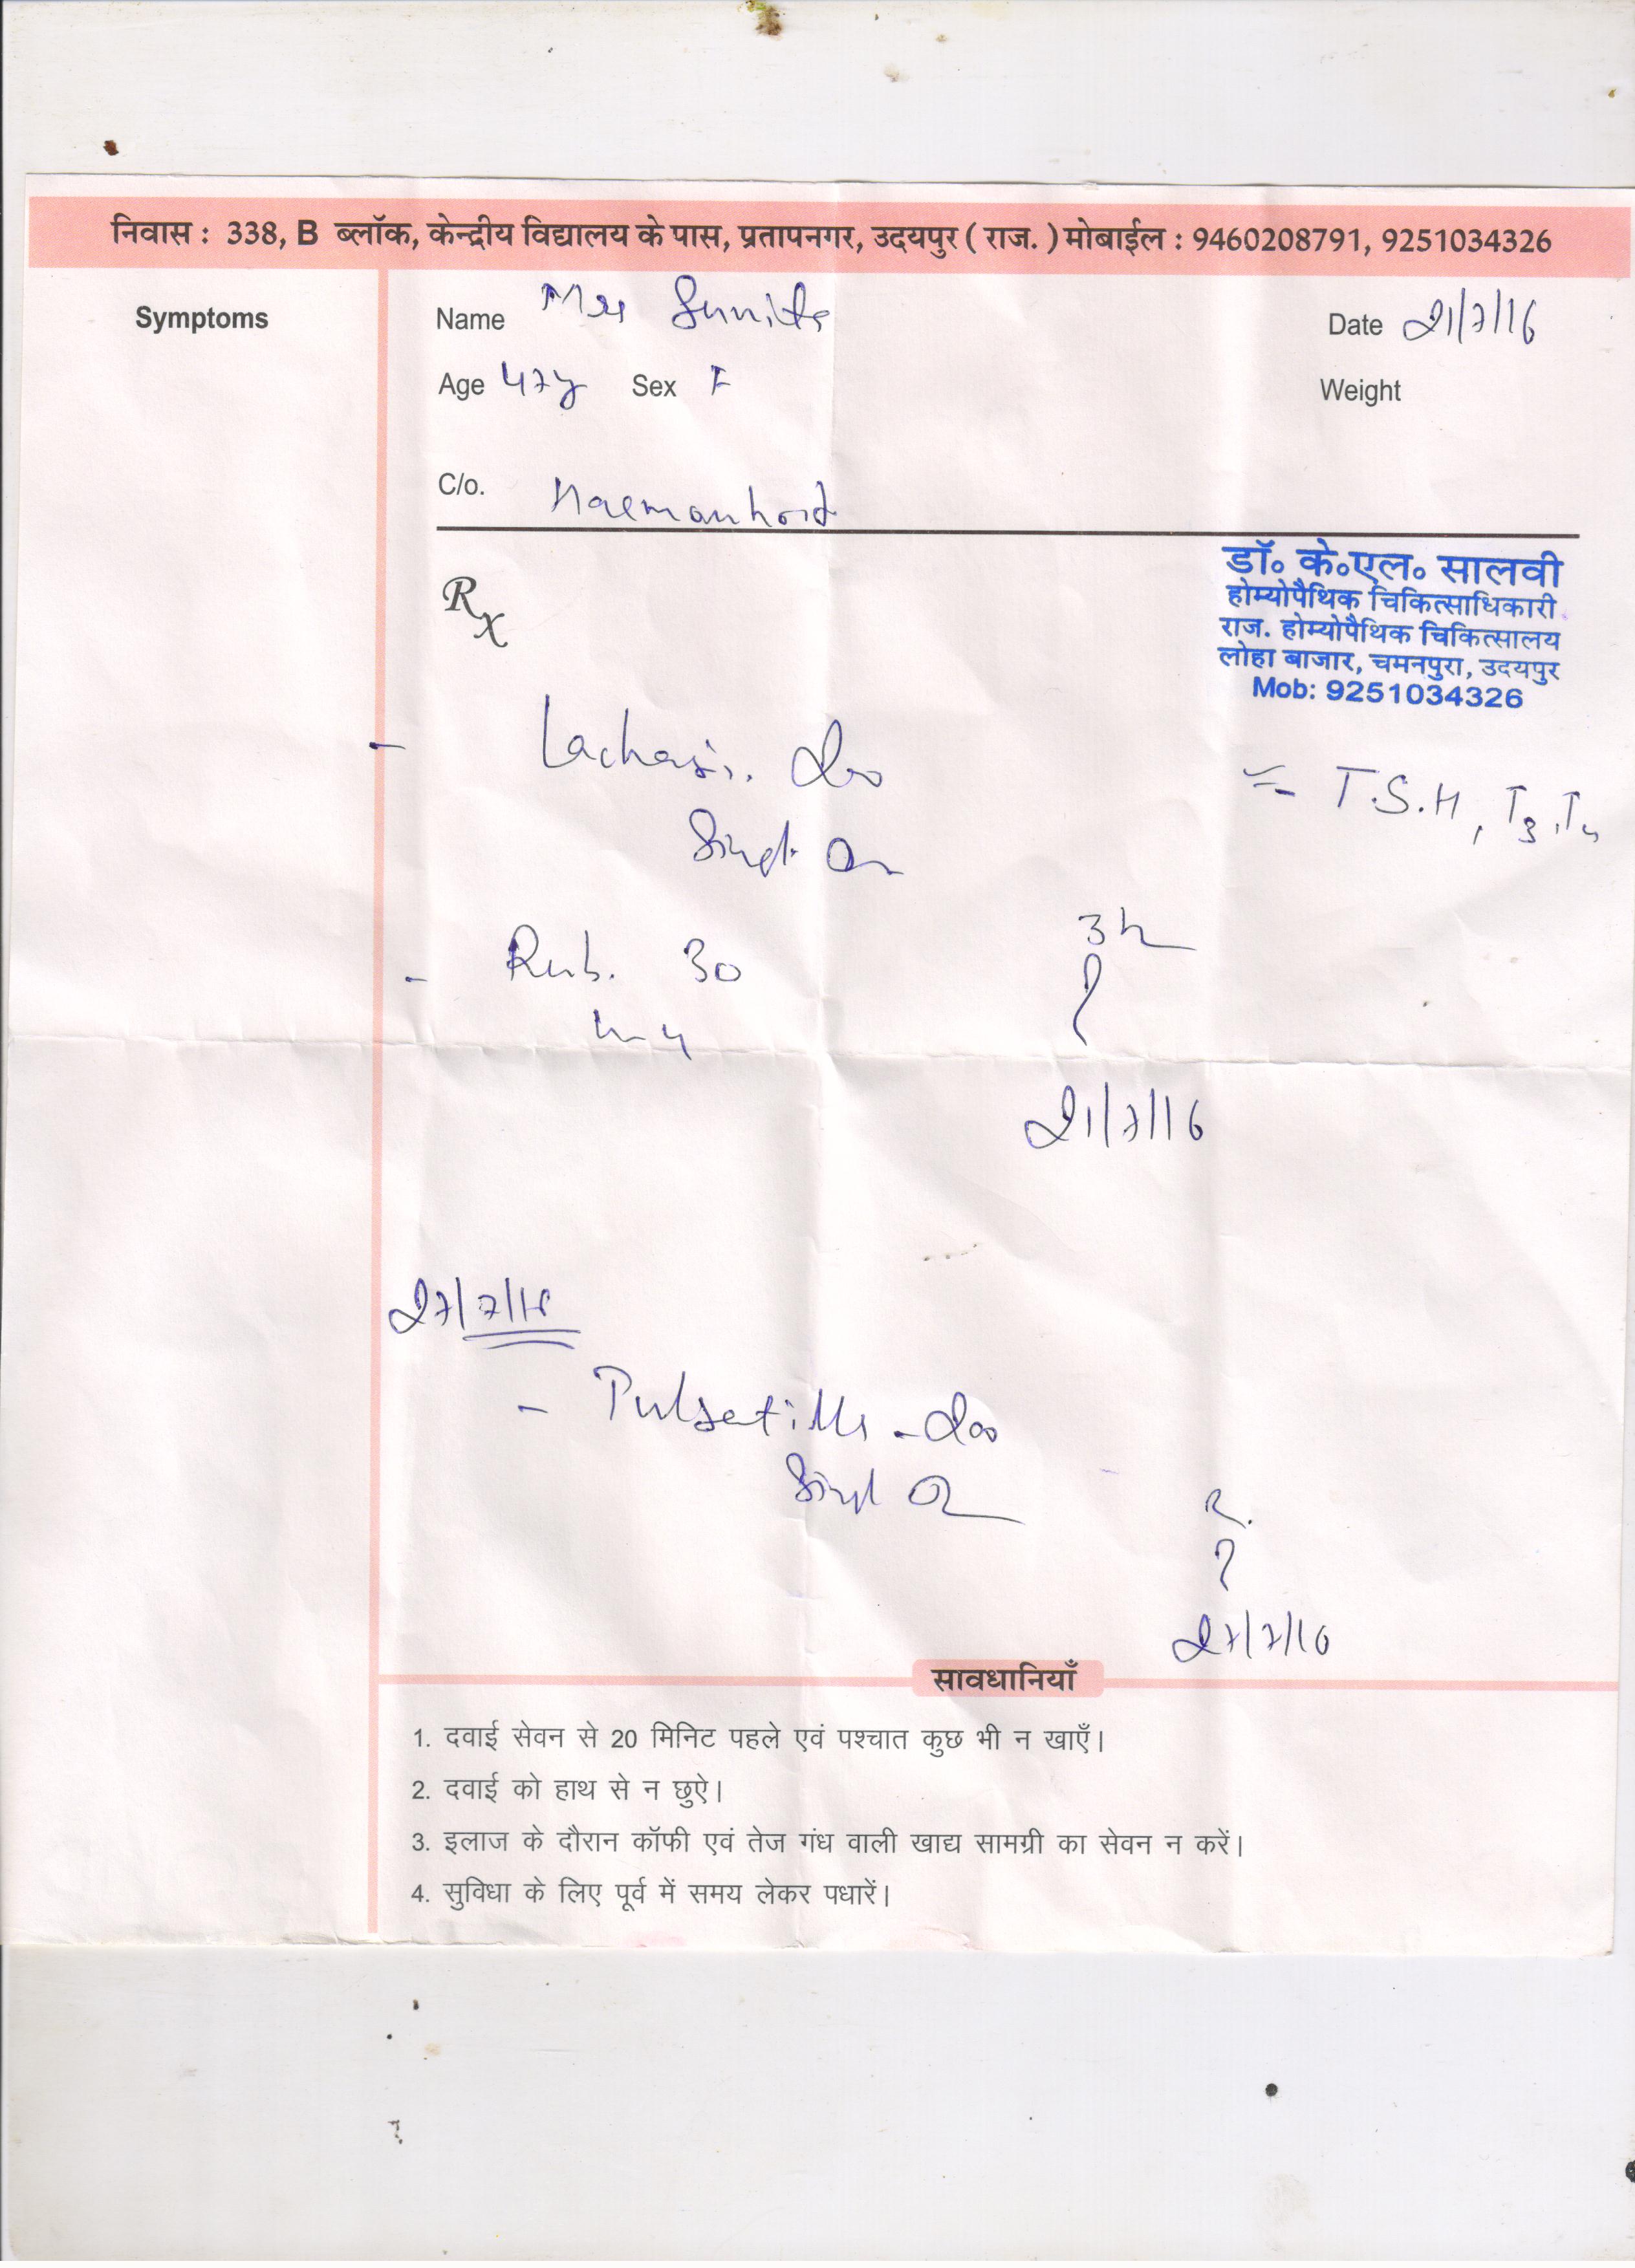 निवास : 338, B ब्लॉक, केन्द्रीय विद्यालय के पास, प्रतापनगर, उदयपुर ( राज. ) मोबाईल : 9460208791, 9251034326
Symptoms
Name Mrs Sunita
Date 21/7/16
Age 47y Sex F
Weight
C/o. Haemorrhoid
डॉ० के०एल० सालवी
होम्योपैथिक चिकित्साधिकारी
राज. होम्योपैथिक चिकित्सालय
लोहा बाजार, चमनपुरा, उदयपुर
Mob: 9251034326
Rx
- Lachesis. 200
= T.S.H, T3, T4
- Rub. 30
21/7/16
27/7/16
- Pulsatilla - 200
27/7/16
सावधानियाँ
1. दवाई सेवन से 20 मिनिट पहले एवं पश्चात कुछ भी न खाएँ।
2. दवाई को हाथ से न छुऐ।
3. इलाज के दौरान कॉफी एवं तेज गंध वाली खाद्य सामग्री का सेवन न करें।
4. सुविधा के लिए पूर्व में समय लेकर पधारें।